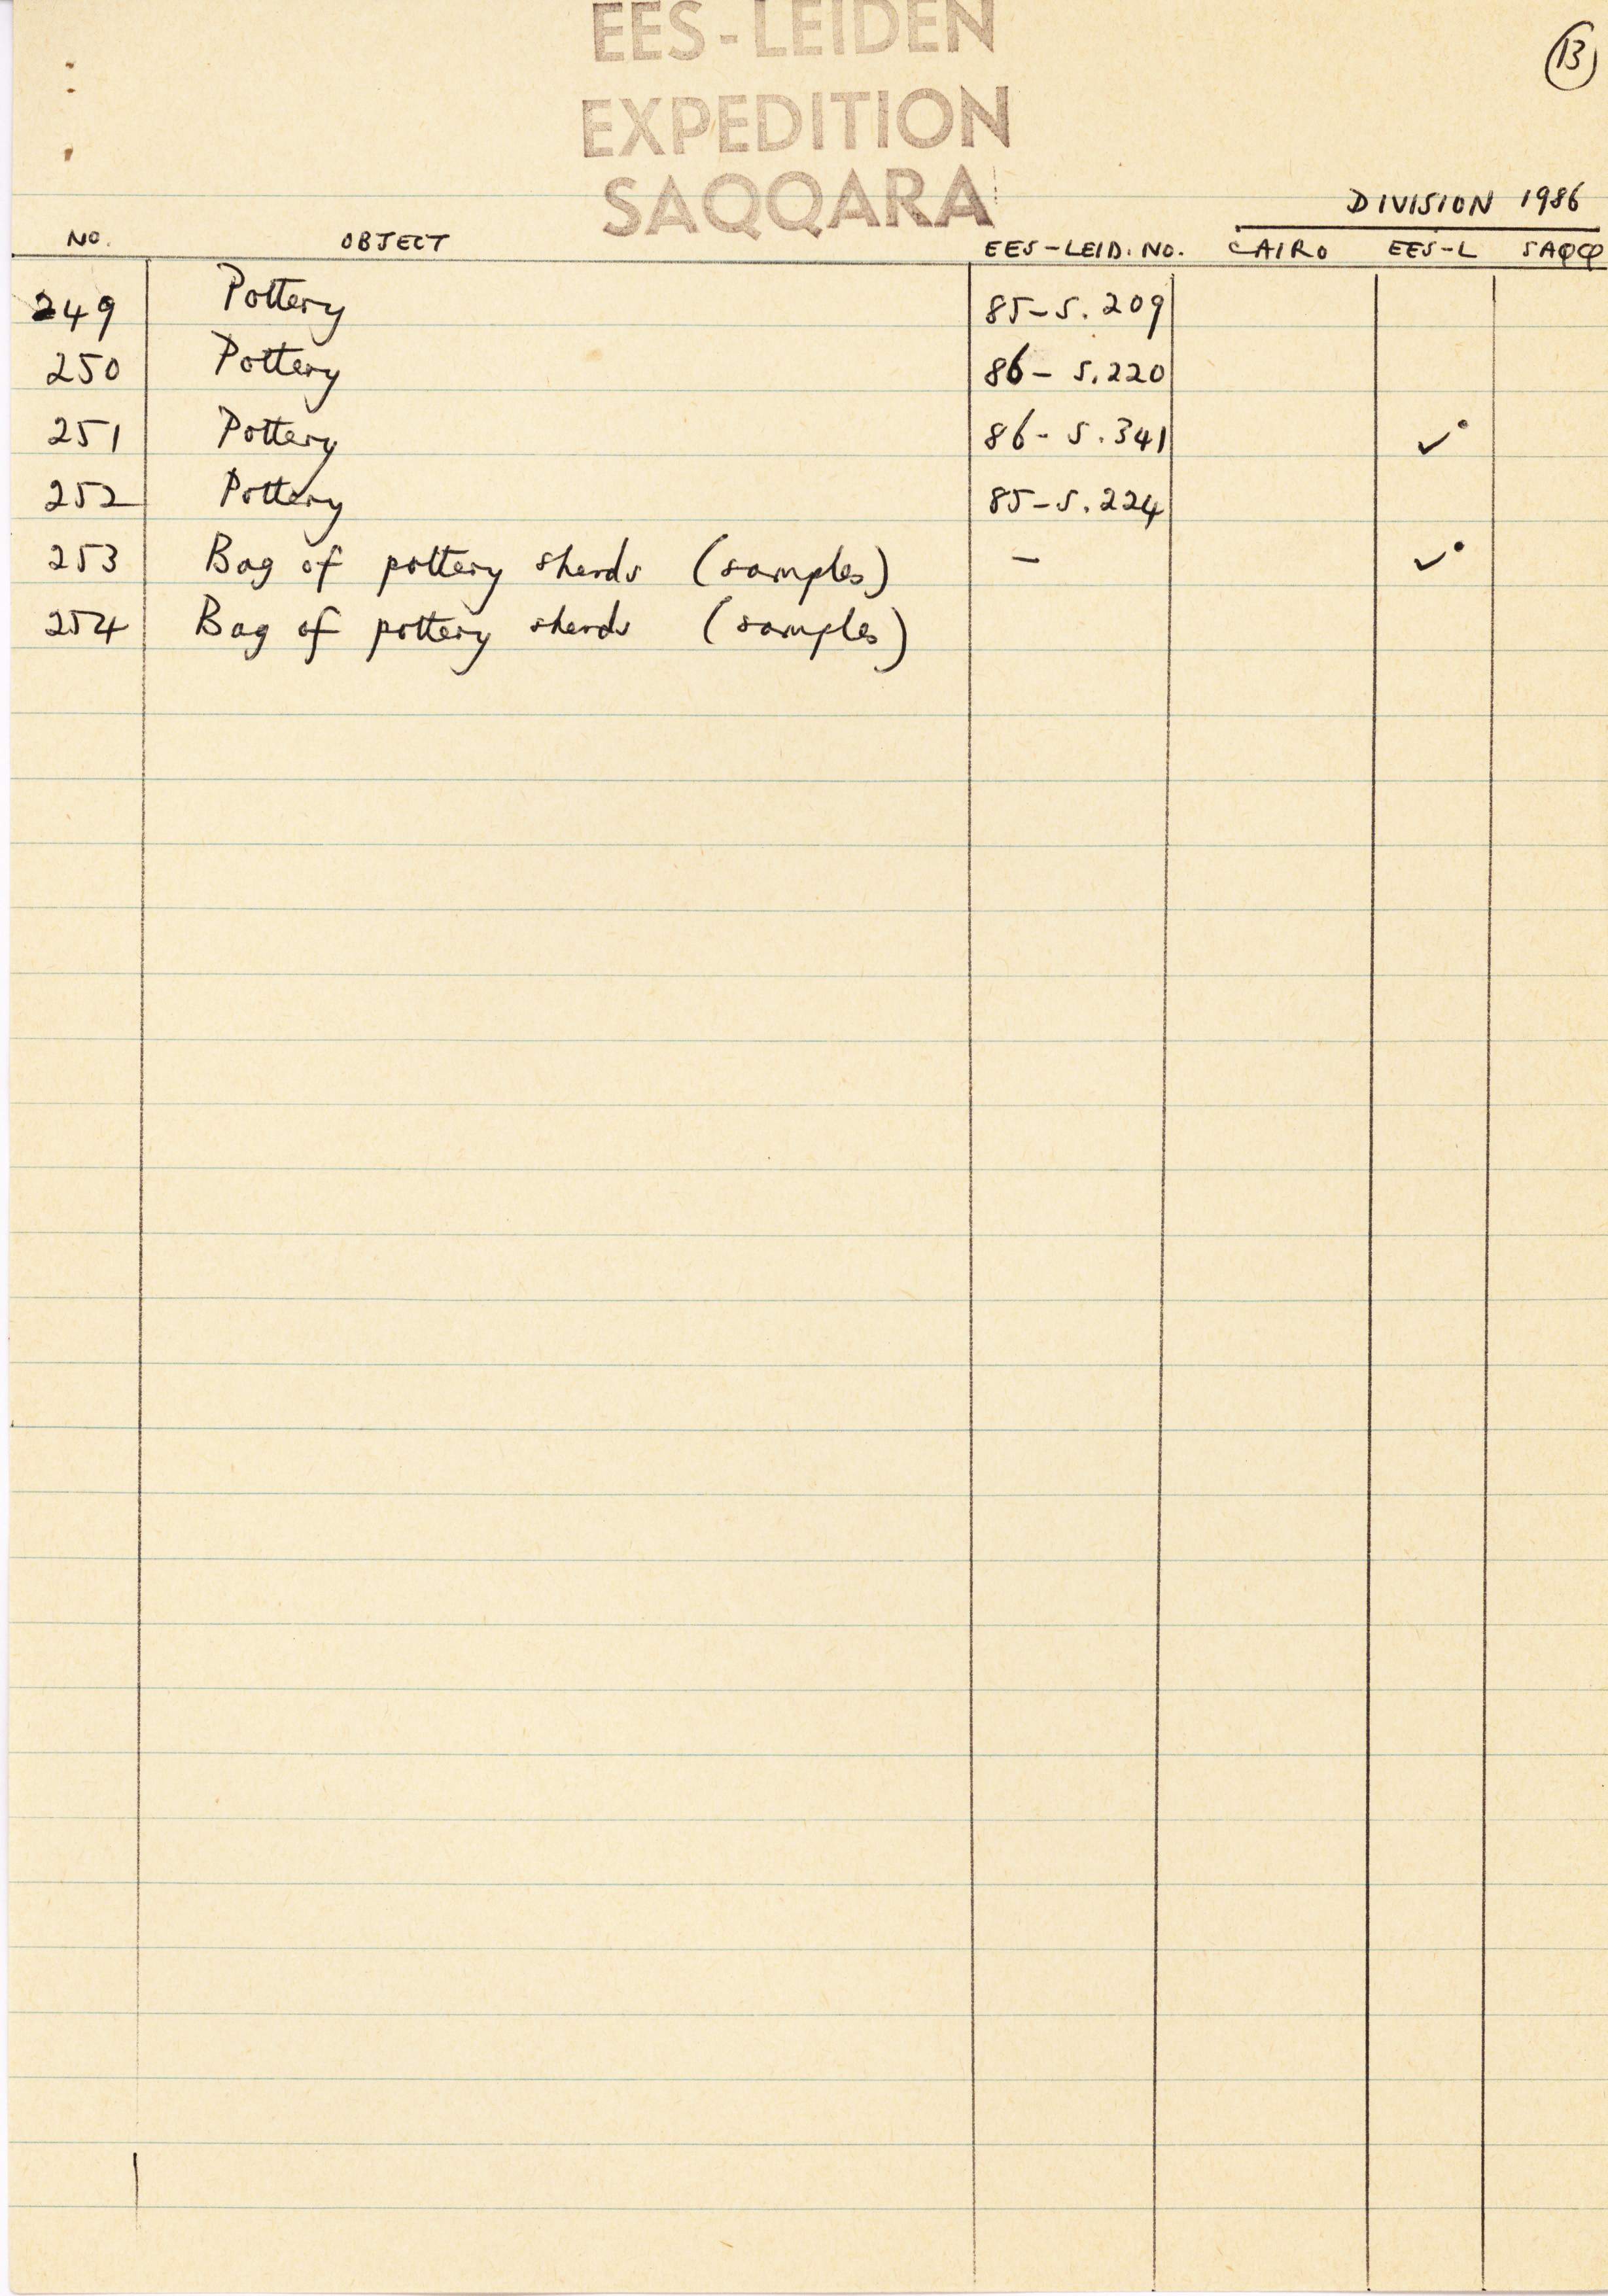 EES-LEIDEN
EXPEDITION
SAQQARA
13
DIVISION 1986
NO. OBJECT EES-LEID. NO. CAIRO EES-L SAQQ
249 Pottery 85-S. 209
250 Pottery 86- S.220
251 Pottery 86- S.341 ✓•
252 Pottery 85-S. 224
253 Bag of pottery sherds (samples) – ✓•
254 Bag of pottery sherds (samples)